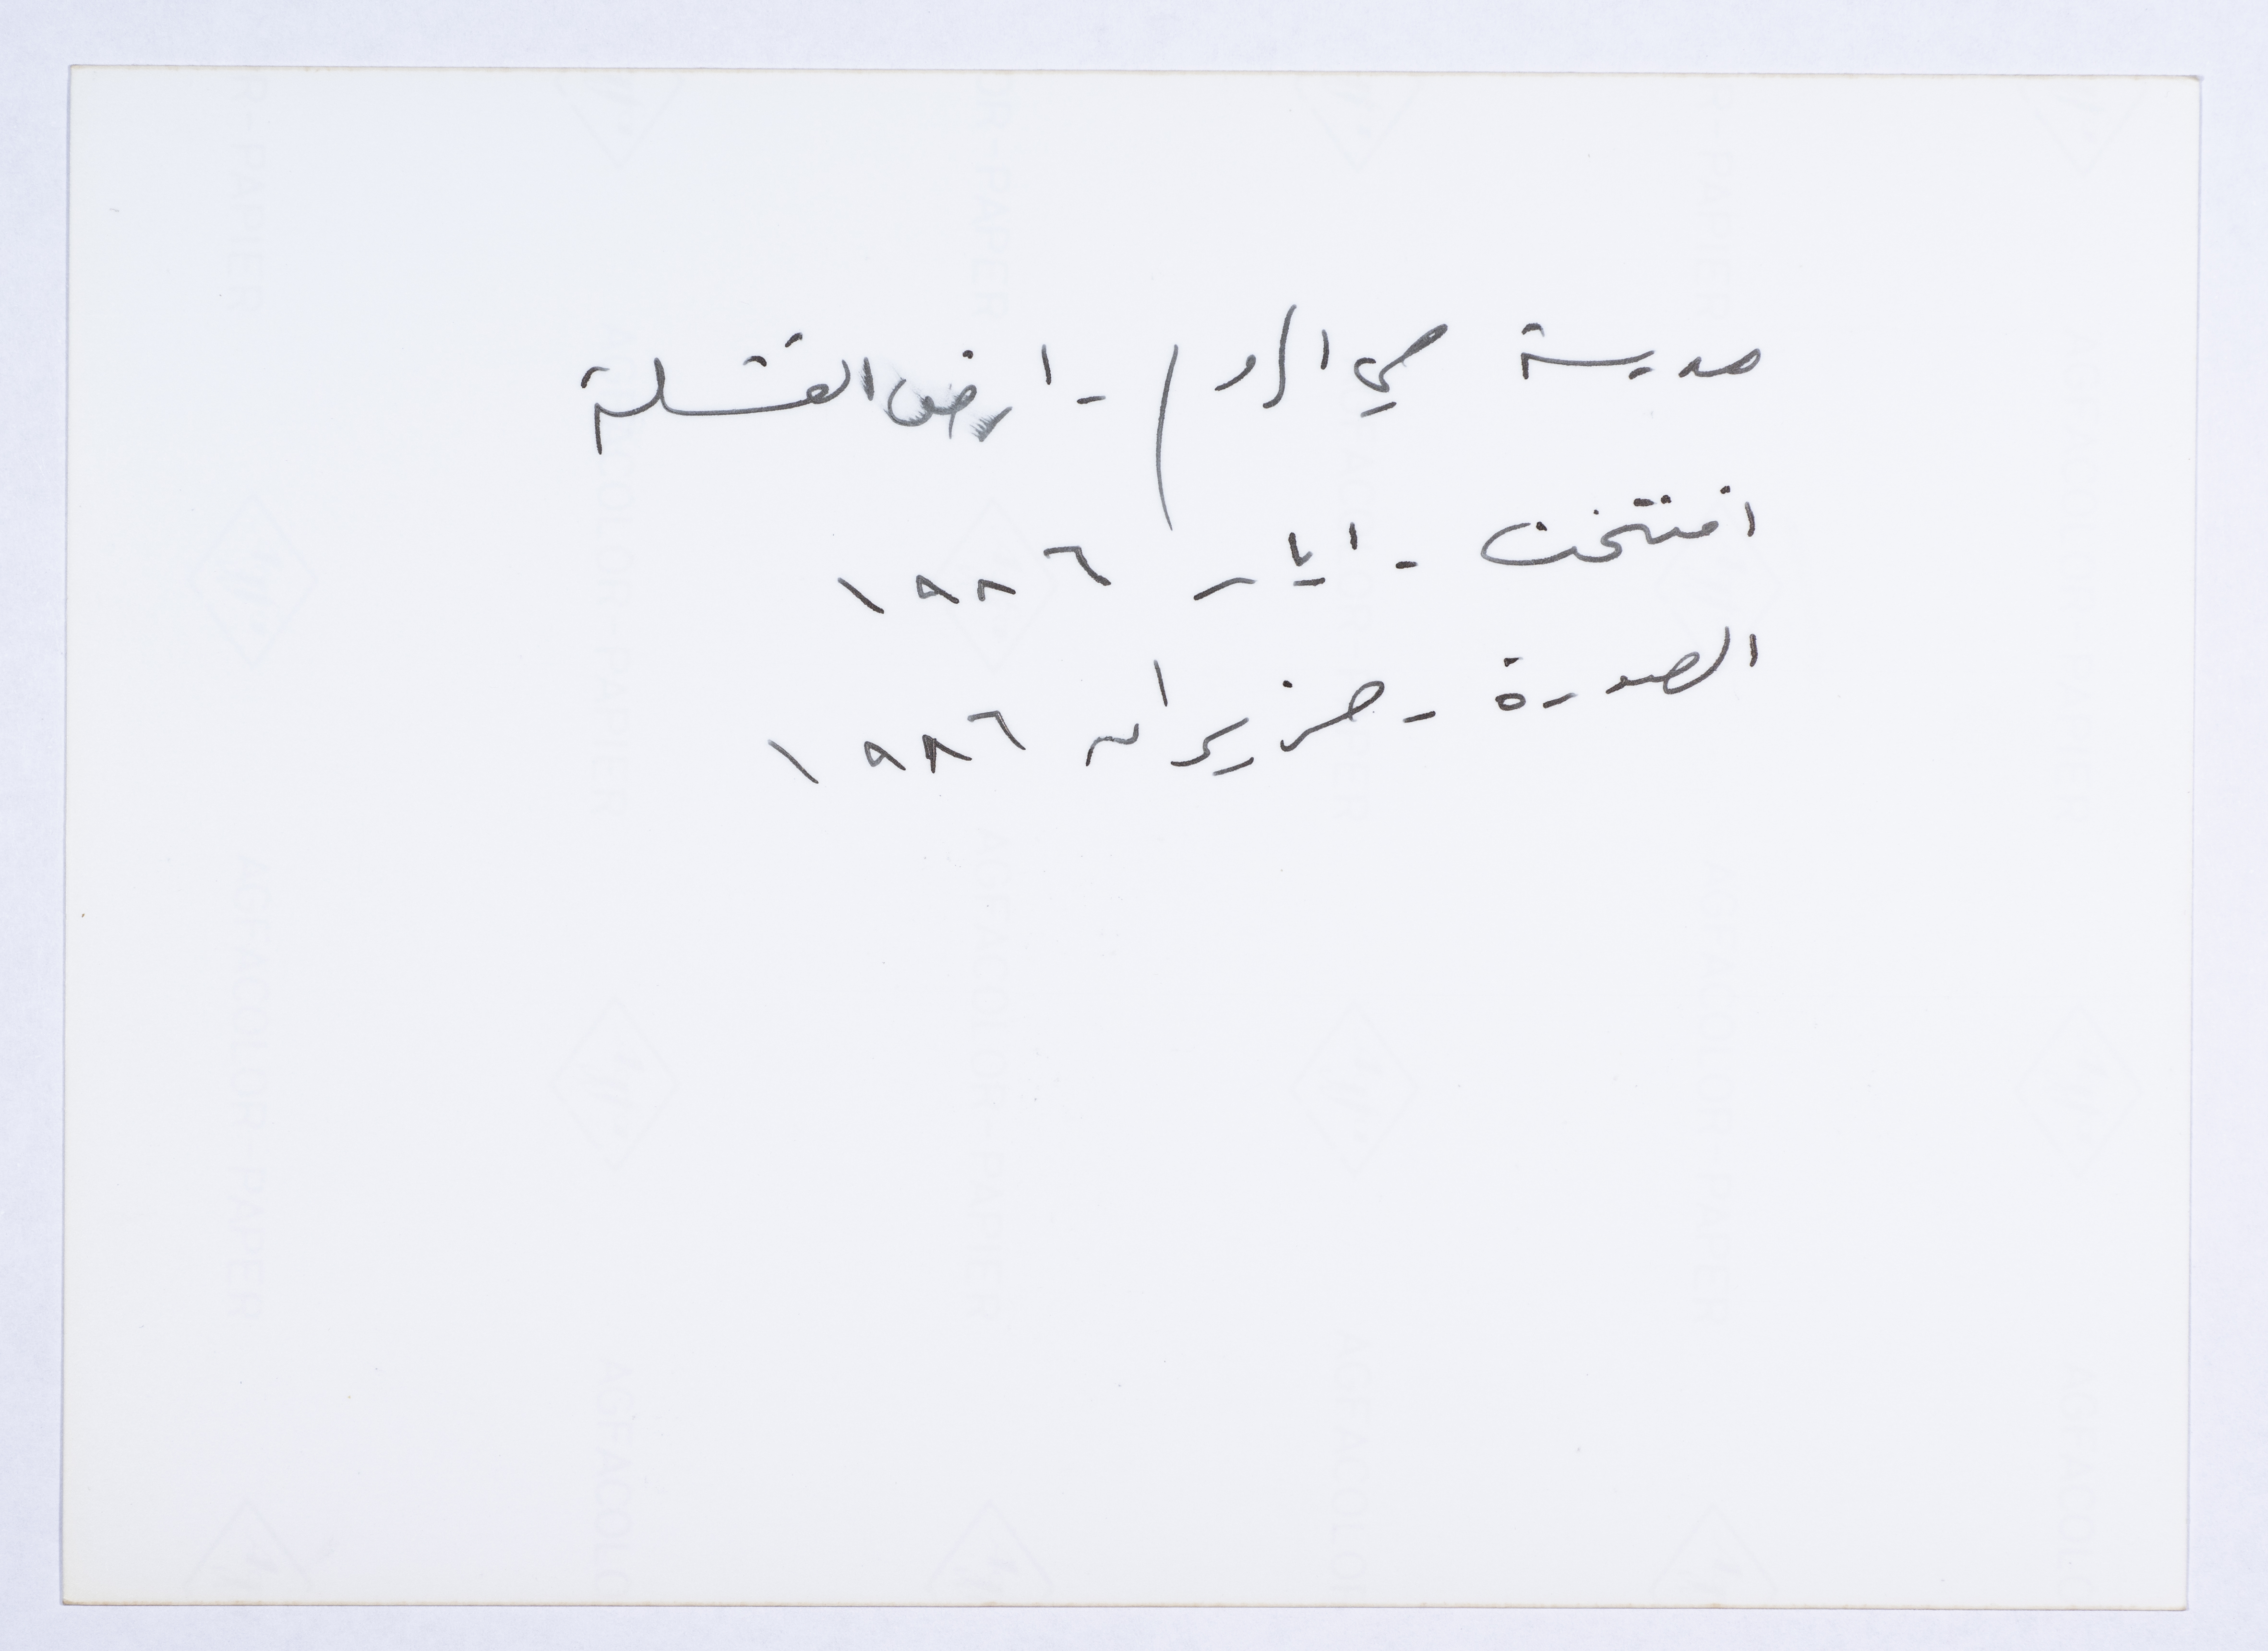 مدرسة حي الروم - ارض القشلة
افتتحت - ايار ١٩٨٦
الصورة - حزيران ١٩٨٦
AGFACOLOR-PAPIER